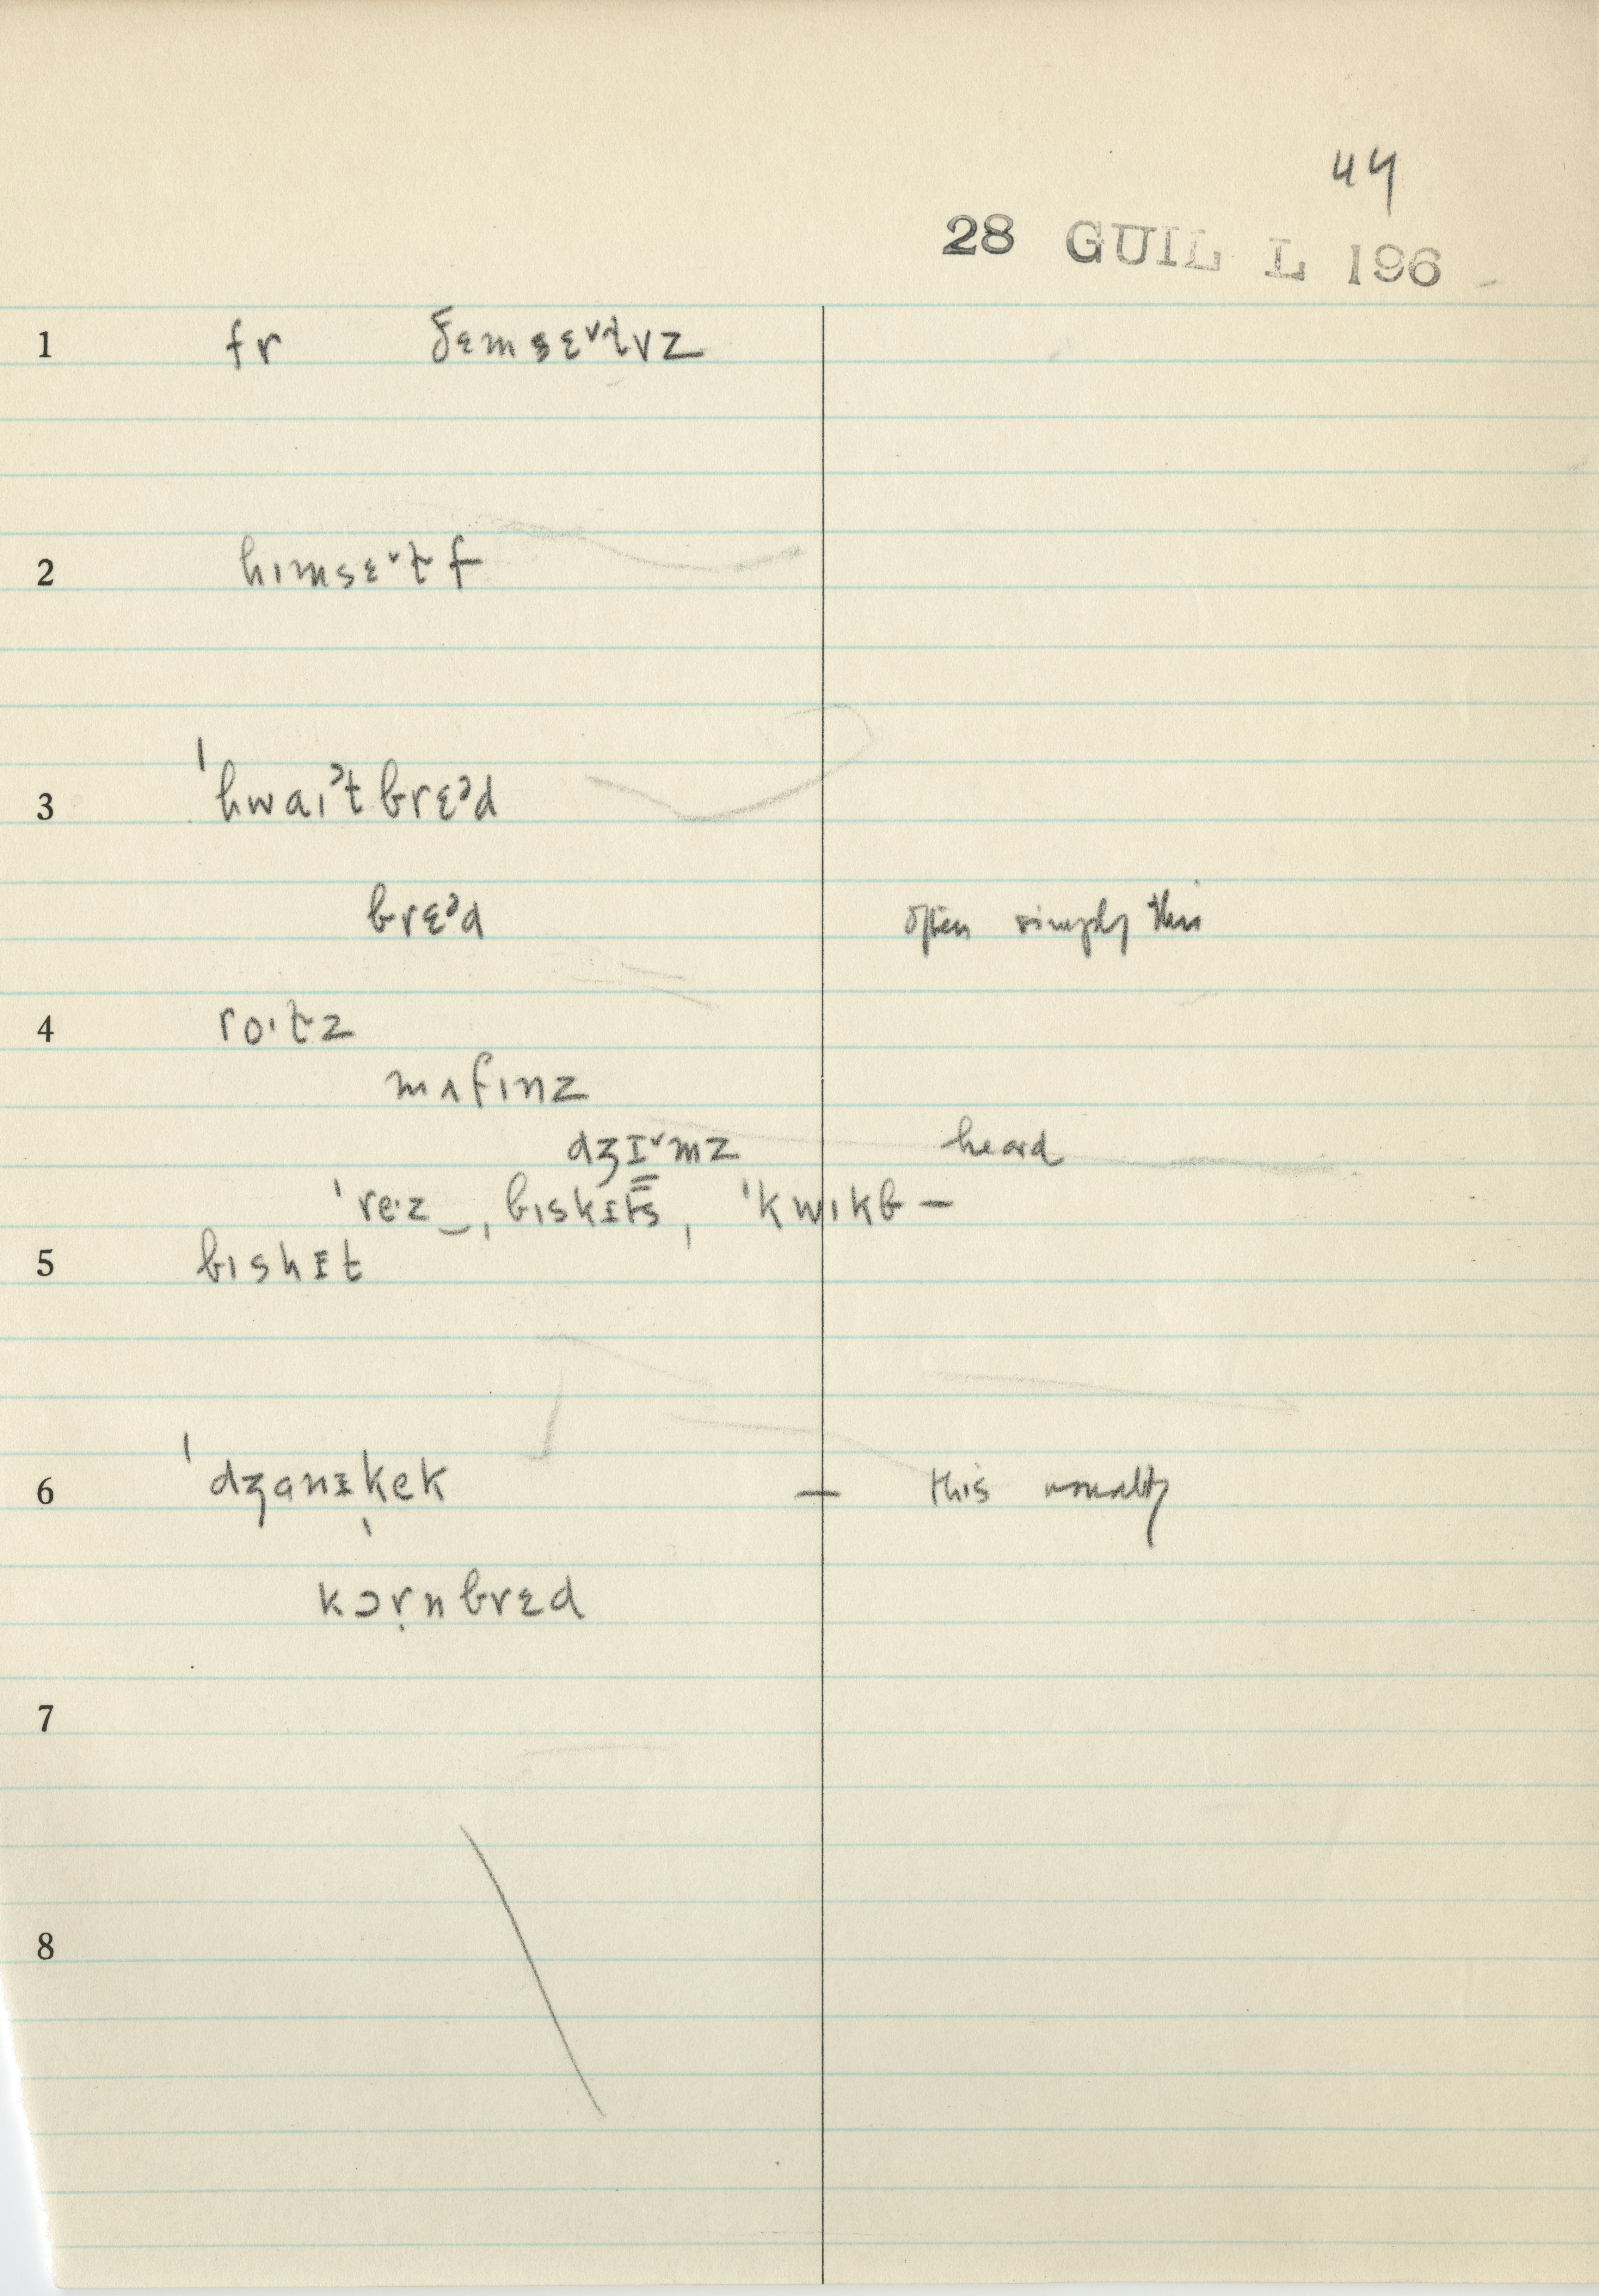 44
28 GUIL L 196
1 fr ðɛmsɛ˅ɫvz
2 hɪmsɛ˅ɫf
3 ˈhwaɪᵊt brɛᵊd
brɛᵊd often simply this
4 ro·ɫz
mʌfɪnz
dʒɪ˅mz heard
ˈre·z‿, bɪskɪts, ˈkwɪkb —
5 bɪskɪt
6 ˈdʒanɪˌkek — this usually
kɔrṇbrɛd
7
8